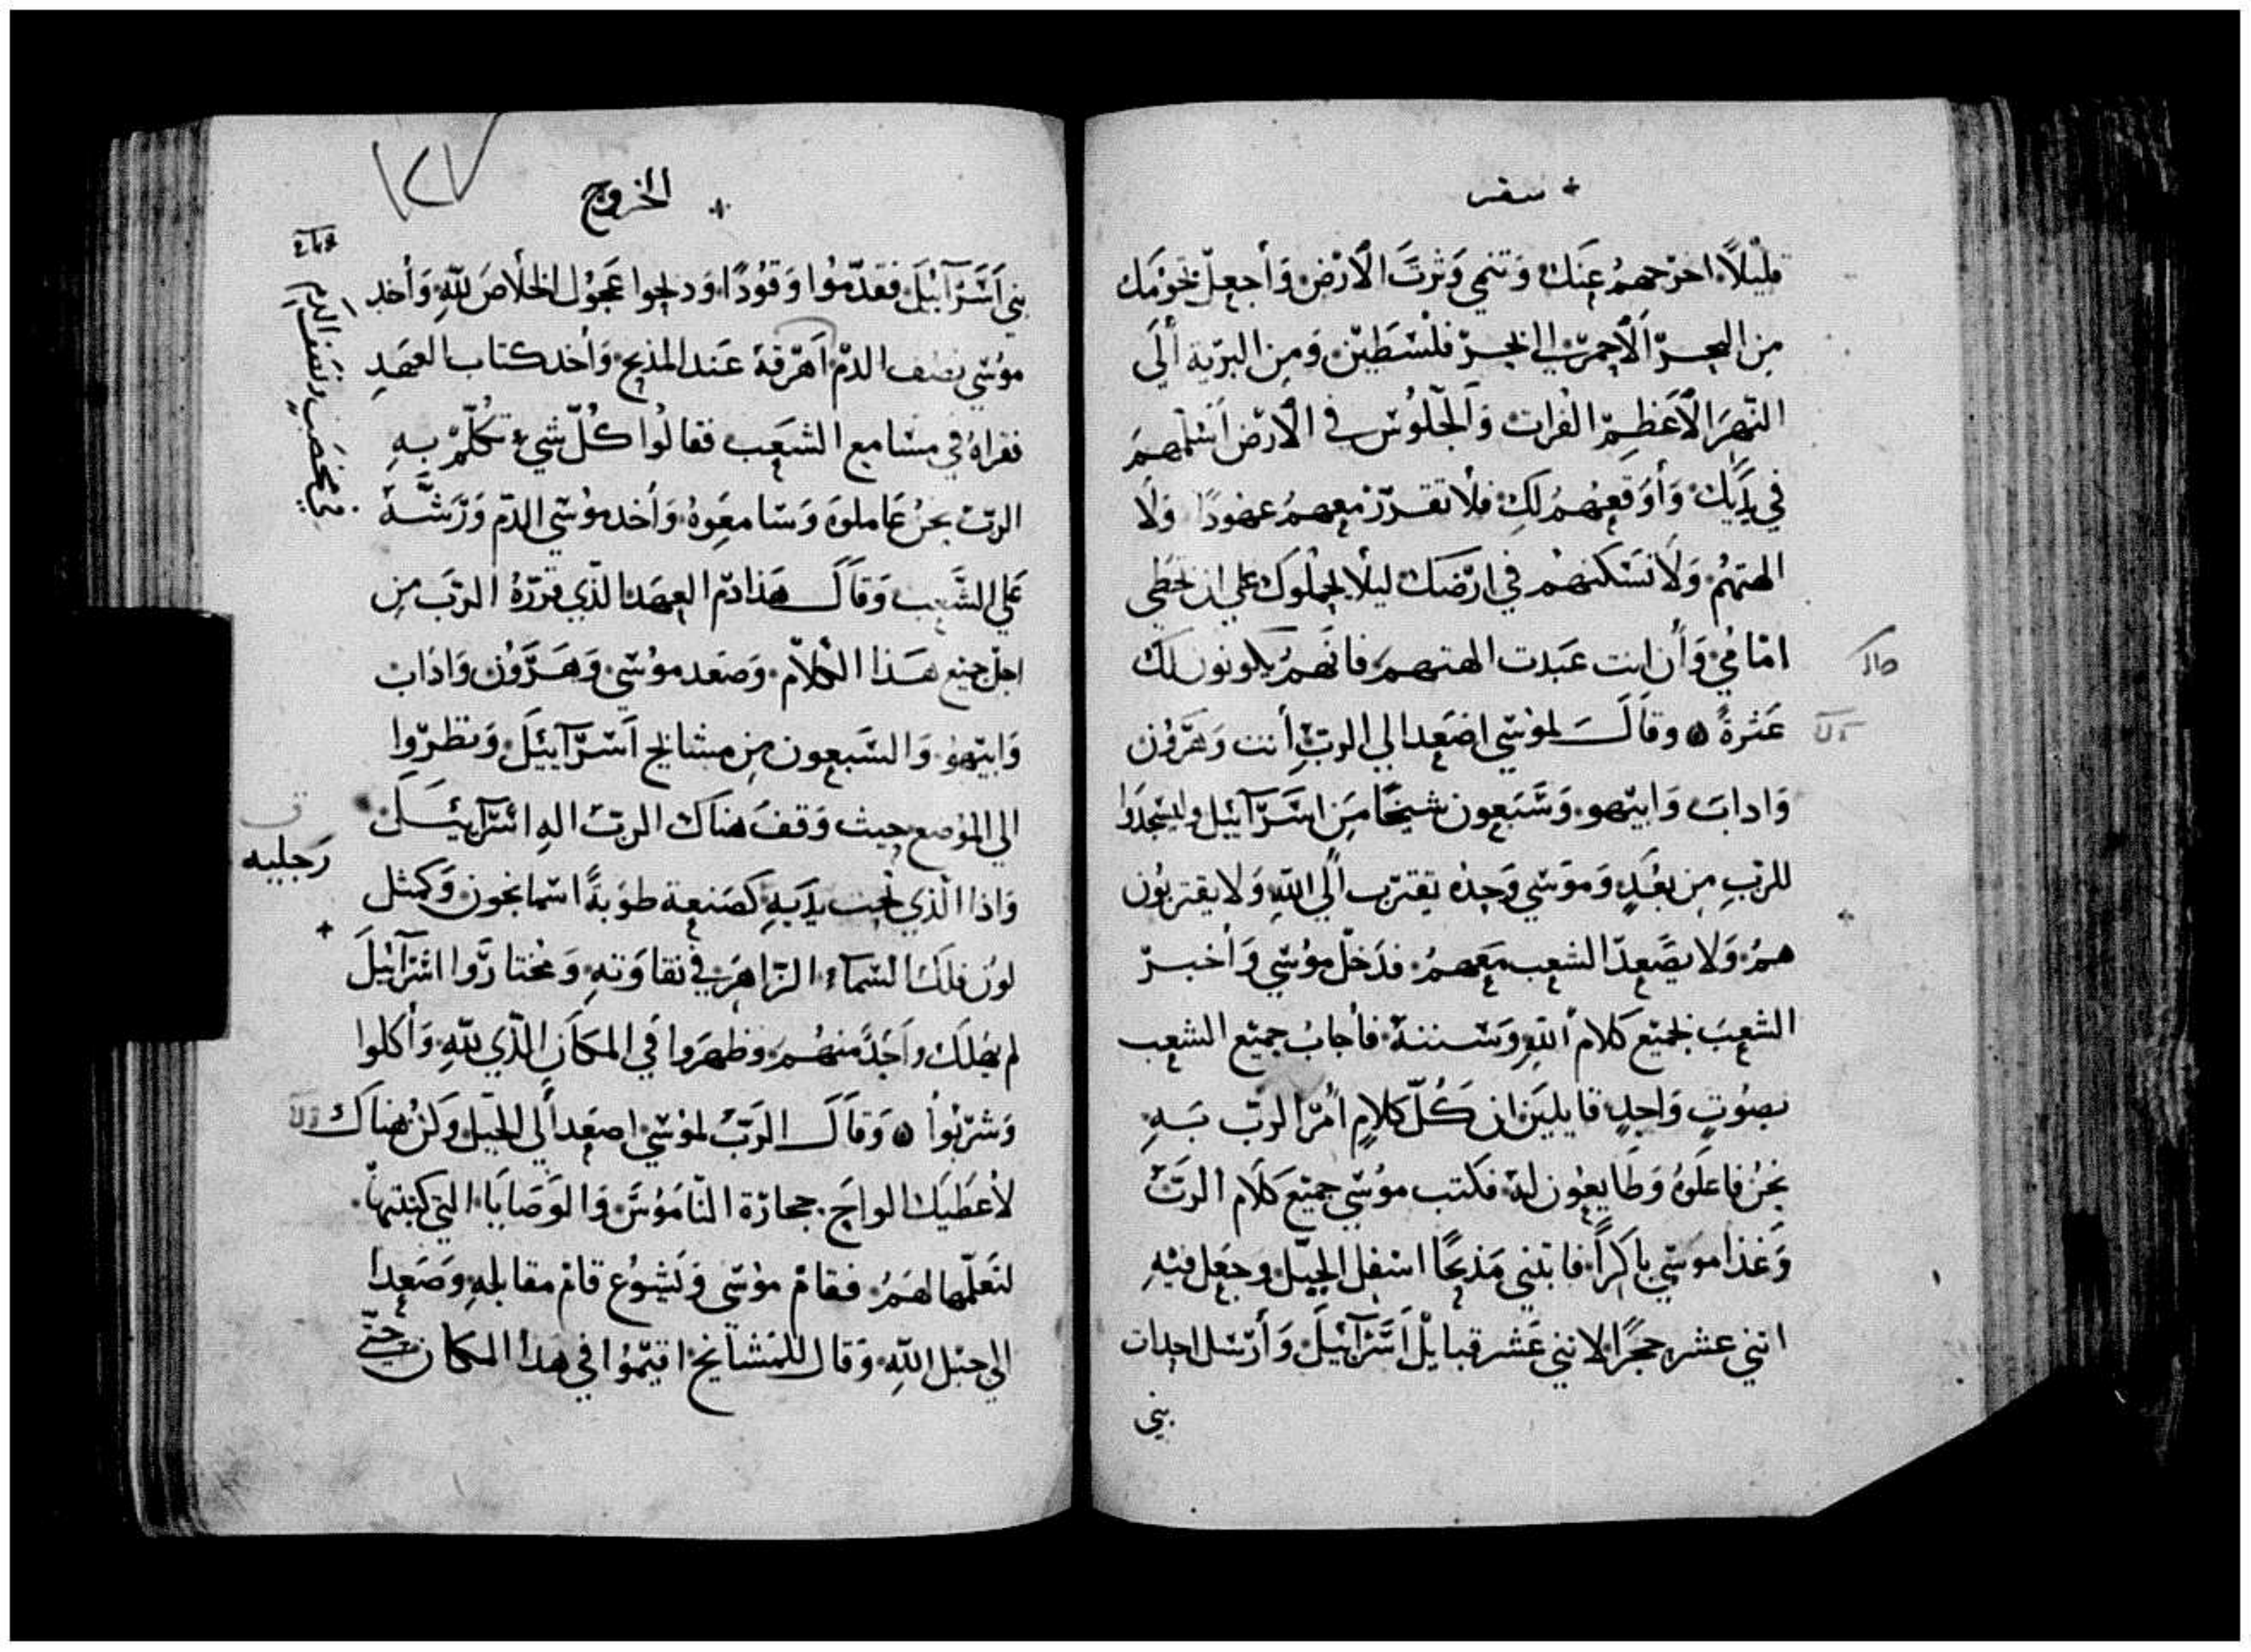 سفر
قليلاً اخرجهم عنك وتنمي وترث الارض وأجعل تخومك
من البحر الاحمر الي البحر فلسطين ومن البرية ألي
النهر الاعظم الفرات والجلوس في الارض اسلمهم
في يديك وأوقعهم لك فلا تقرر معهم عهودًا ولا
الهتهم ولا تسكنهم في ارضك ليلا يحملوك علي ان تخطي
امامي وأن انت عبدت الهتهم فانهم يكونون لك
عثرةً وقال لموسي اصعد الي الرب أنت وهرون
واداب وابيهو وسبعون شيخًا من اسرآئيل وليسجدوا
للرب من بعدٍ وموسي وحده يقترب ألي الله ولا يقتربون
هم ولا يصعد الشعب معهم فدخل موسي وأخبر
الشعب بجميع كلام الله وسننه فأجاب جميع الشعب
بصوتٍ واحدٍ قايلين ان كل كلامٍ امر الرب به
نحن فاعلوه وطايعون له فكتب موسي جميع كلام الرب
وغذا موسي باكرًا فابتني مذبحًا اسفل الجبل وجعل فيه
اثني عشر حجرًا لاثني عشر قبايل اسرآئيل وأرسل احداث
بني
الخروج
١٢٧
بني اسرآئيل فقدموا وقودًا ودبحوا عجول الخلاص لله وأخد
موسي نصف الدم اهرقه عند المذبح وأخد كتاب العهد
فقراه في مسامع الشعب فقالوا كل شيء تكلم به
الرب نحن عاملوه وسامعوه وأخد موسي الدم ورشه
علي الشعب وقال هذا دم العهد الذي قرره الرب من
اجل جميع هذا الكلام وصعد موسي وهرون واداب
وابيهو والسبعون من مشايخ اسرآييل ونظروا
الي الموضع حيث وقف هناك الرب اله اسرآئيل
رجليه
واذا الذي تحت يديه كصنعة طوبةً اسمانجون وكمثل
لون فلك السماء الزاهر في نقاوته ومختاروا اسرآئيل
لم يهلك واحدً منهم وظهروا في المكان الذي لله وأكلوا
وشربوا وقال الرب لموسي اصعد ألي الجبل وكن هناك
لأعطيك الواح حجارة الناموس والوصايا التي كتبتها
لتعلمها لهم فقام موسي ويشوع قام مقابله وصعدا
الي جبل الله وقال للمشايخ اقيموا في هذا المكان حتي